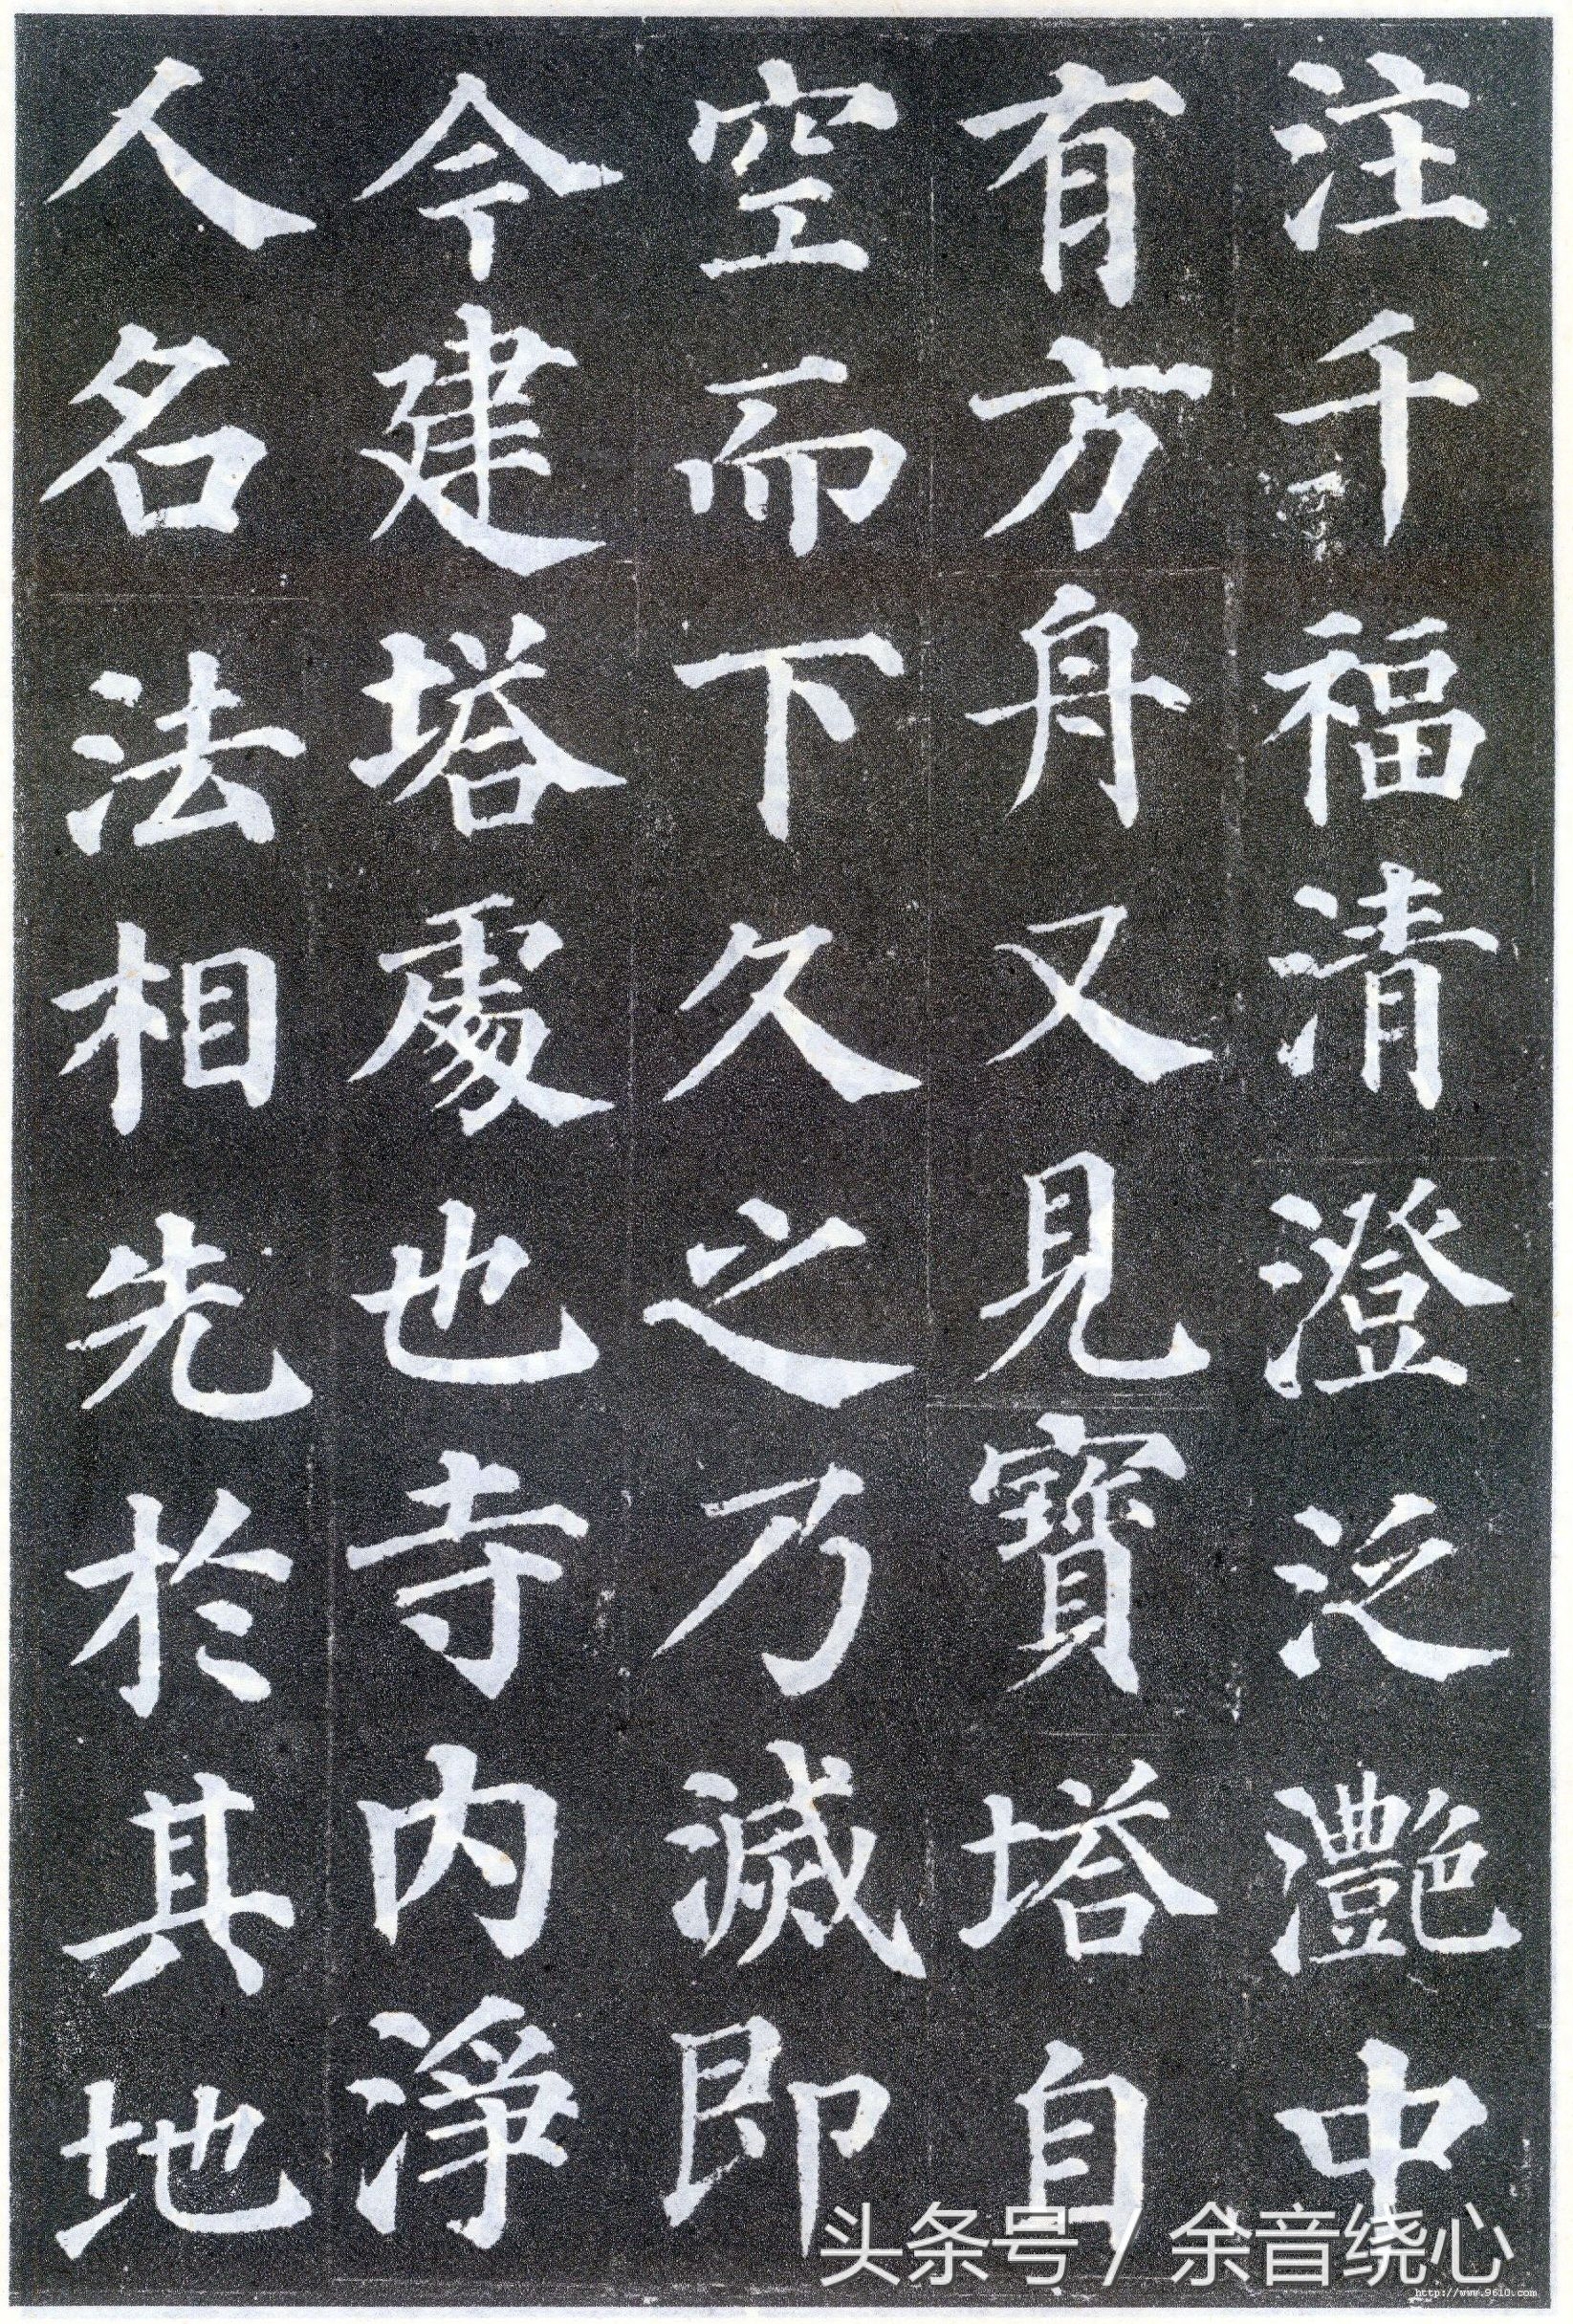 注千福清澄泛灩中
有方舟又見寶塔自
空而下久之乃滅即
今建塔處也寺内淨
人名法相先於其地
头条号 / 余音绕心
http://www.9610.com